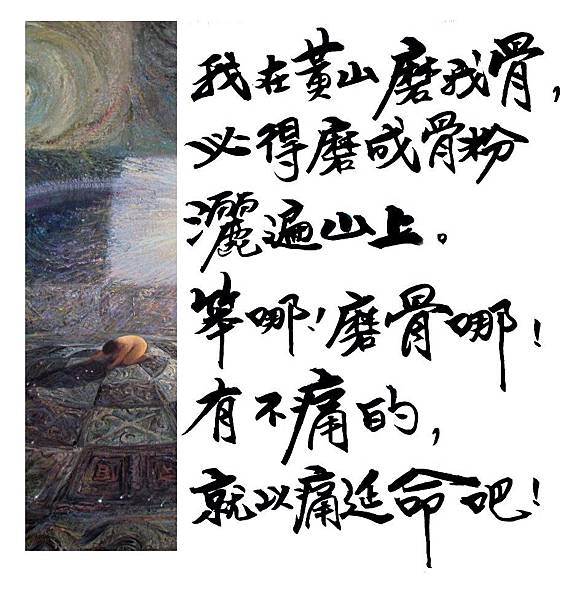 我在黃山磨我骨，
必得磨成骨粉
灑遍山上。
筆哪！磨骨哪！
有不痛的，
就以痛延命吧！